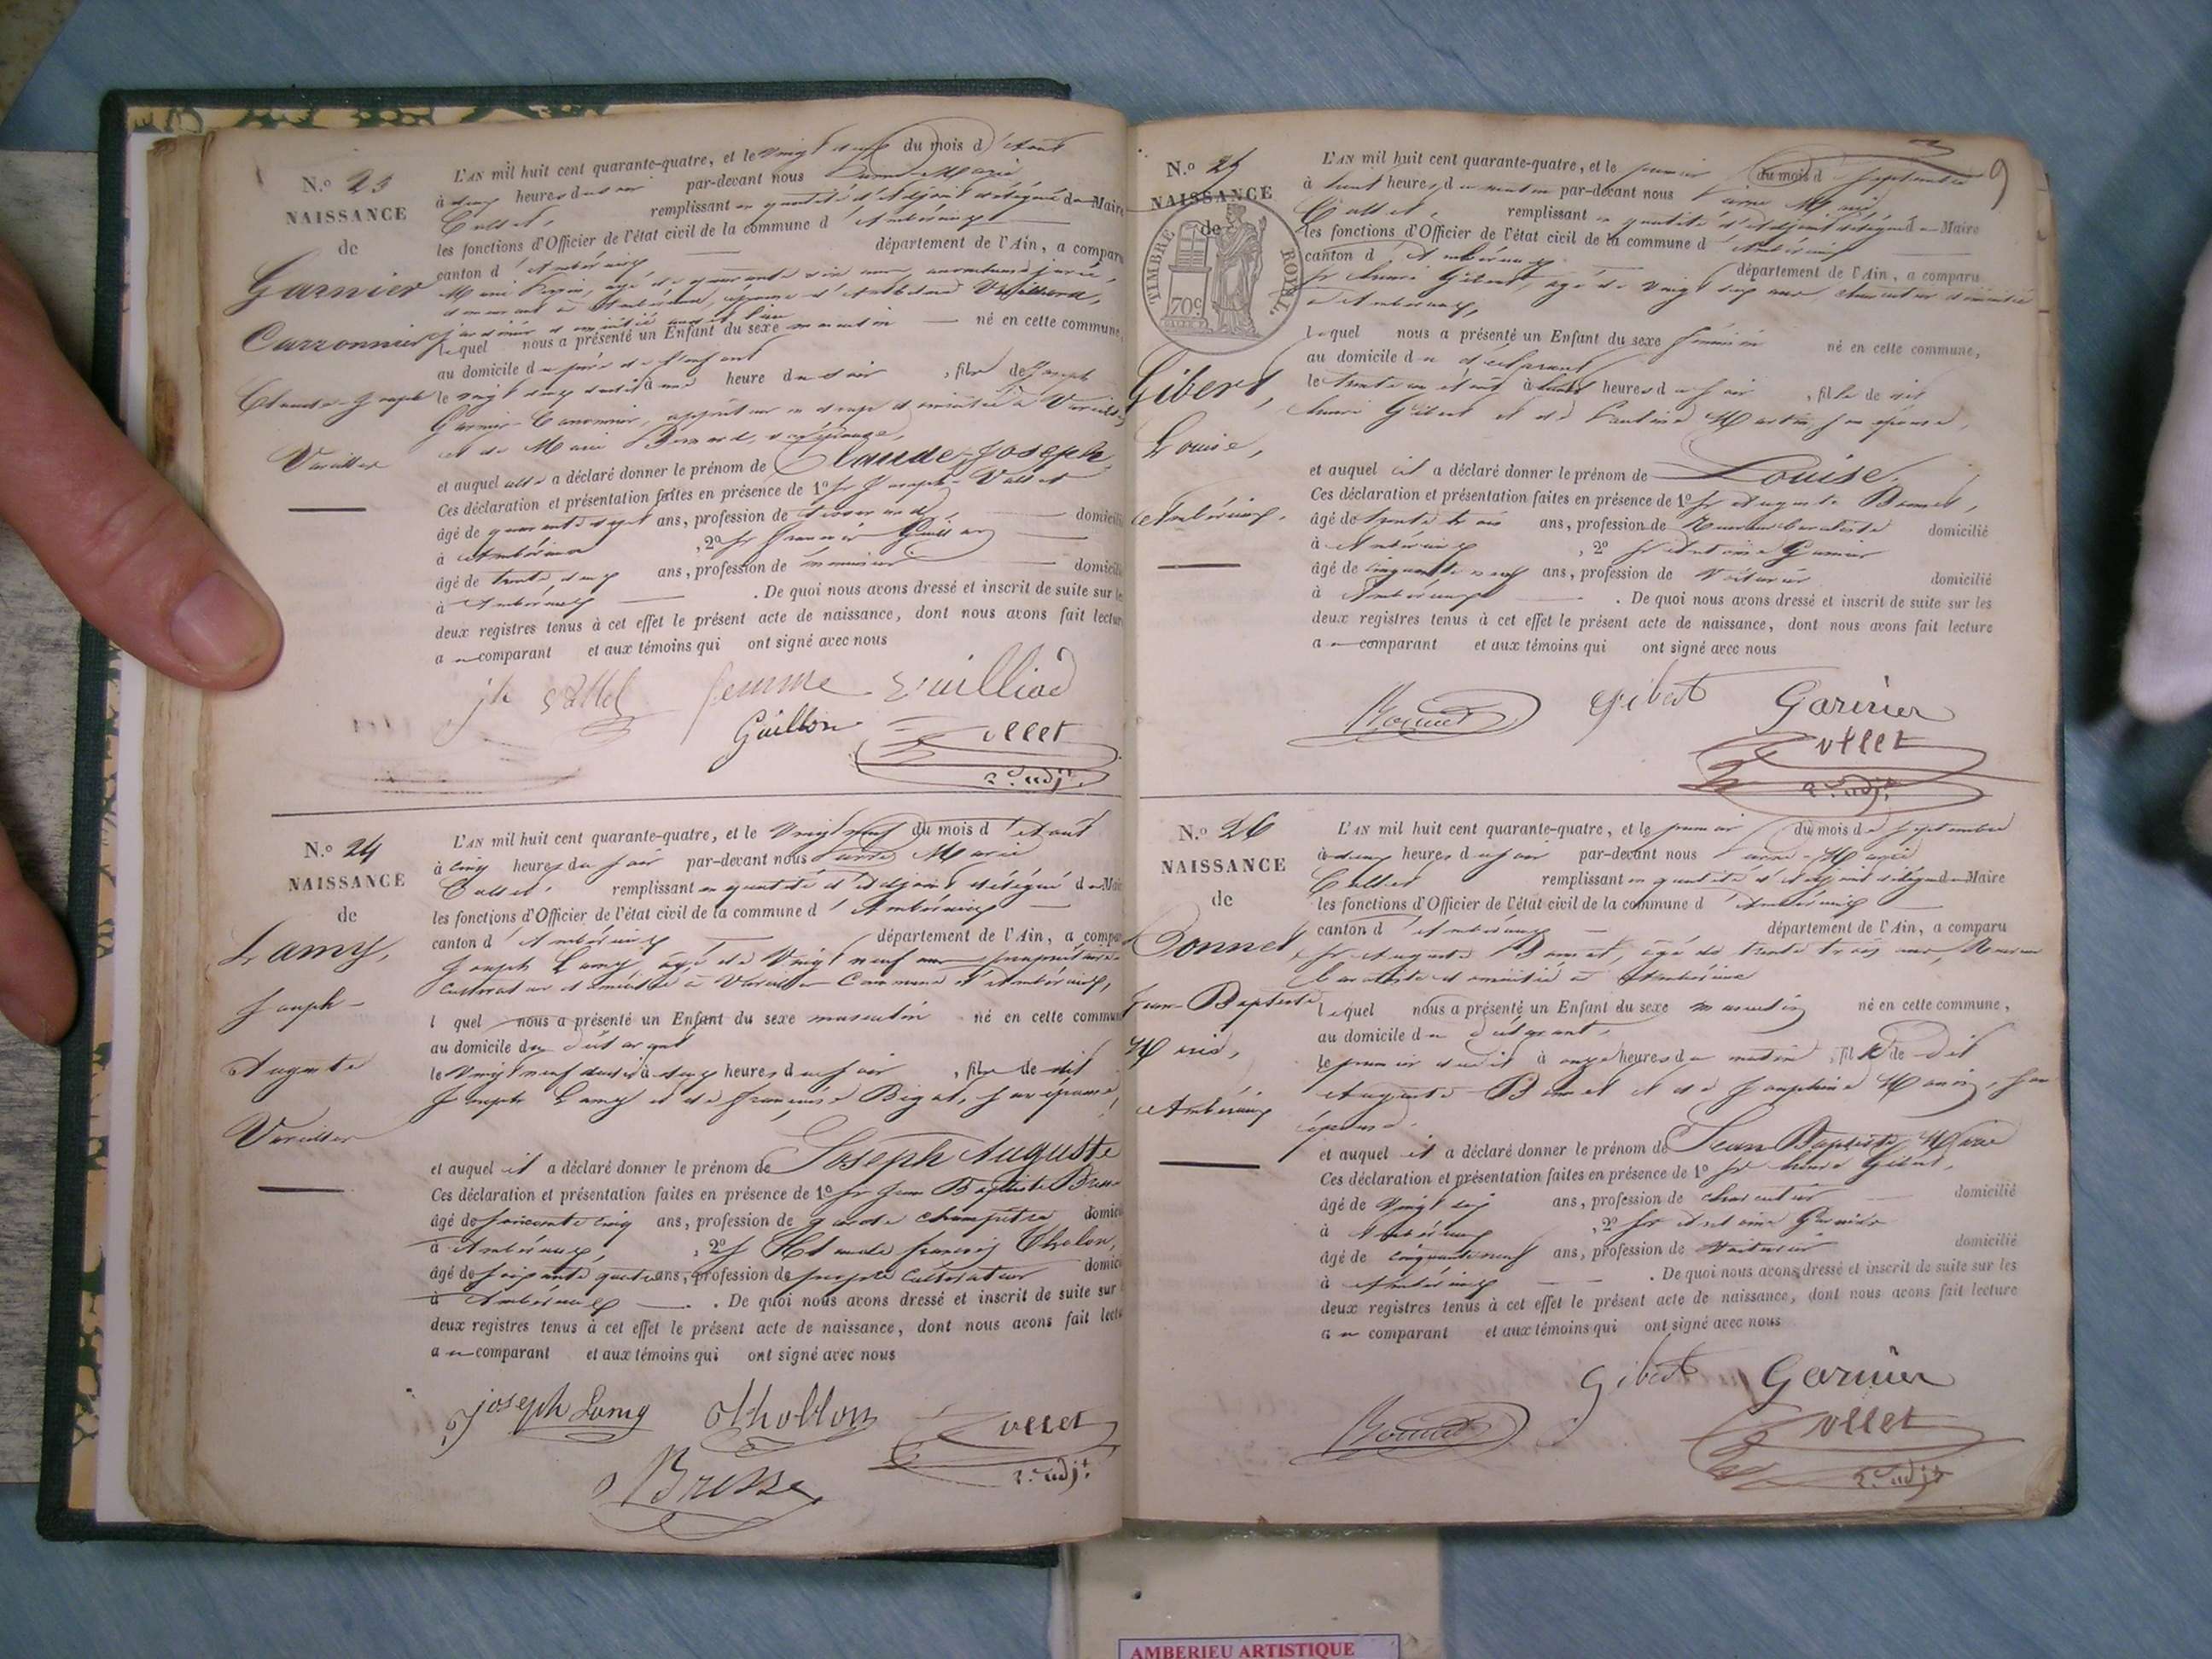 N.o 23
NAISSANCE
de
Garnier
Carronnier
Claude-Joseph
Vareilles
L'AN mil huit cent quarante-quatre, et le vingt deux du mois d'Aout
à deux heures du soir par-devant nous Pierre-Marie
Collet, remplissant en qualité d'Adjoint délégué du Maire
les fonctions d'Officier de l'état civil de la commune d'Ambérieux
canton d'Ambérieux département de l'Ain, a comparu
Marie agé de quarante six ans,
demeurant à Ambérieux, épouse d'Anthelme Vuilliard,
lequel nous a présenté un Enfant du sexe masculin né en cette commune,
au domicile du père de l'enfant
le vingt deux dudit à une heure du soir, fils de Joseph
Garnier-Carronnier, domicilié à Vareilles
et de Marie Bernard, son épouse,
et auquel elle a déclaré donner le prénom de Claude-Joseph
Ces déclaration et présentation faites en présence de 1o Sr Joseph Vallet
âgé de quarante sept ans, profession de domicilié
à Ambérieux, 2o Sr François Guillon
âgé de trente deux ans, profession de menuisier domicilié
à Ambérieux. De quoi nous avons dressé et inscrit de suite sur les
deux registres tenus à cet effet le présent acte de naissance, dont nous avons fait lecture
au comparant et aux témoins qui ont signé avec nous
jh Vallet femme Vuilliard
Guillon Collet
2e adjt
N.o 24
NAISSANCE
de
Lamy,
Joseph-
Auguste
Vareilles
L'AN mil huit cent quarante-quatre, et le Vingt neuf du mois d'Aout
à cinq heures du soir par-devant nous Pierre Marie
Collet, remplissant en qualité d'Adjoint délégué du Maire
les fonctions d'Officier de l'état civil de la commune d'Ambérieux
canton d'Ambérieux département de l'Ain, a comparu
Joseph Lamy agé de Vingt neuf ans propriétaire
cultivateur domicilié à Vareilles Commune d'Ambérieux,
l quel nous a présenté un Enfant du sexe masculin né en cette commune
au domicile du déclarant
le Vingt neuf dudit à deux heures du soir, fils de dit
Joseph Lamy et de Françoise Bigot, son épouse,
et auquel il a déclaré donner le prénom de Joseph Auguste
Ces déclaration et présentation faites en présence de 1o Sr Jean Baptiste
âgé de soixante cinq ans, profession de garde champêtre domicilié
à Ambérieux, 2o Sr Claude François Tholon,
âgé de soixante quatre ans, profession de propre cultivateur domicilié
à Ambérieux. De quoi nous avons dressé et inscrit de suite sur
deux registres tenus à cet effet le présent acte de naissance, dont nous avons fait lecture
au comparant et aux témoins qui ont signé avec nous
Joseph Lamy Thollon Collet
Bresse 2e adjt
N.o 25
NAISSANCE
de
TIMBRE ROYAL.
70c
Gibert,
Louise,
Ambérieux,
9
L'AN mil huit cent quarante-quatre, et le premier du mois de Septembre
à huit heures du matin par-devant nous Pierre Marie
Collet, remplissant en qualité d'Adjoint délégué du Maire
les fonctions d'Officier de l'état civil de la commune d'Ambérieux
canton d'Ambérieux département de l'Ain, a comparu
Sr Gibert, agé de Vingt six ans, charcutier domicilié
à Ambérieux,
lequel nous a présenté un Enfant du sexe féminin né en cette commune,
au domicile du déclarant
le trente un Aout à huit heures du soir, fille de dit
Gibert et de Pauline Martin son épouse,
et auquel il a déclaré donner le prénom de Louise,
Ces déclaration et présentation faites en présence de 1o Sr Auguste Bonnet,
âgé de trente trois ans, profession de domicilié
à Ambérieux, 2o Sr Antoine Garnier
âgé de cinquante neuf ans, profession de Voiturier domicilié
à Ambérieux. De quoi nous avons dressé et inscrit de suite sur les
deux registres tenus à cet effet le présent acte de naissance, dont nous avons fait lecture
au comparant et aux témoins qui ont signé avec nous
Bonnet Gibert Garnier
Collet
2e adjt
N.o 26
NAISSANCE
de
Bonnet,
Jean-Baptiste
Marie,
Ambérieux
L'AN mil huit cent quarante-quatre, et le premier du mois de Septembre
à deux heures du soir par-devant nous Pierre-Marie
Collet remplissant en qualité d'Adjoint délégué du Maire
les fonctions d'Officier de l'état civil de la commune d'Ambérieux
canton d'Ambérieux département de l'Ain, a comparu
Sr Auguste Bonnet, agé de trente trois ans,
domicilié à Ambérieux
lequel nous a présenté un Enfant du sexe masculin né en cette commune,
au domicile du déclarant,
le premier dudit à onze heures du matin, fils de dit
Auguste Bonnet et de Joséphine son
épouse.
et auquel il a déclaré donner le prénom de Jean Baptiste Marie
Ces déclaration et présentation faites en présence de 1o Sr Gibert,
âgé de Vingt six ans, profession de charcutier domicilié
à Ambérieux, 2o Sr Antoine Garnier
âgé de cinquante neuf ans, profession de Voiturier domicilié
à Ambérieux. De quoi nous avons dressé et inscrit de suite sur les
deux registres tenus à cet effet le présent acte de naissance, dont nous avons fait lecture
au comparant et aux témoins qui ont signé avec nous
Bonnet Gibert Garnier
Collet
2e adjt
AMBERIEU ARTISTIQUE